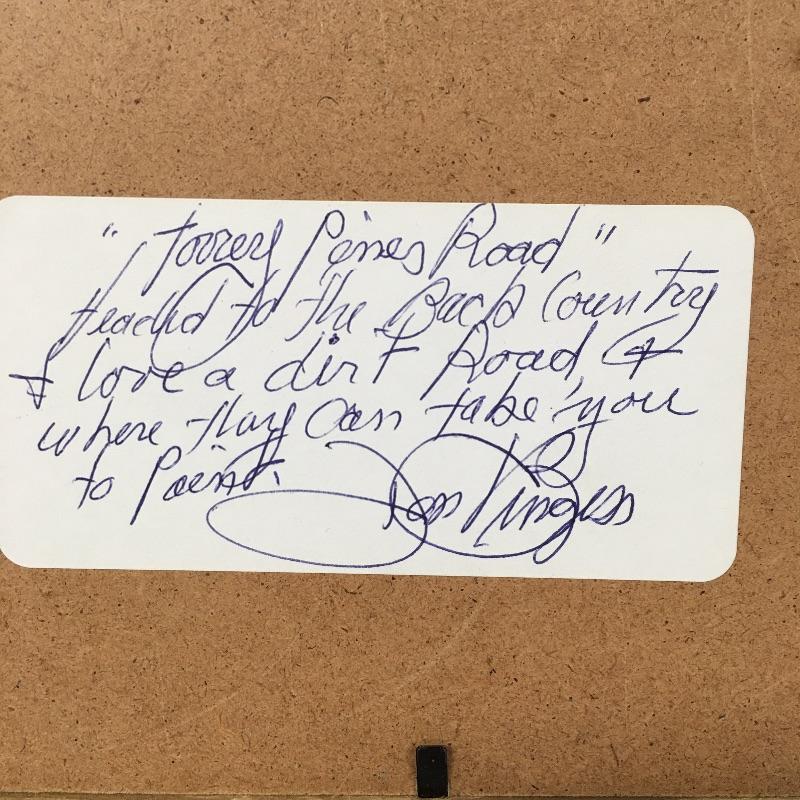 " Torrey Pines Road "
Headed to the Back Country
I love a dirt Road, &
where they can take you
to Paint.